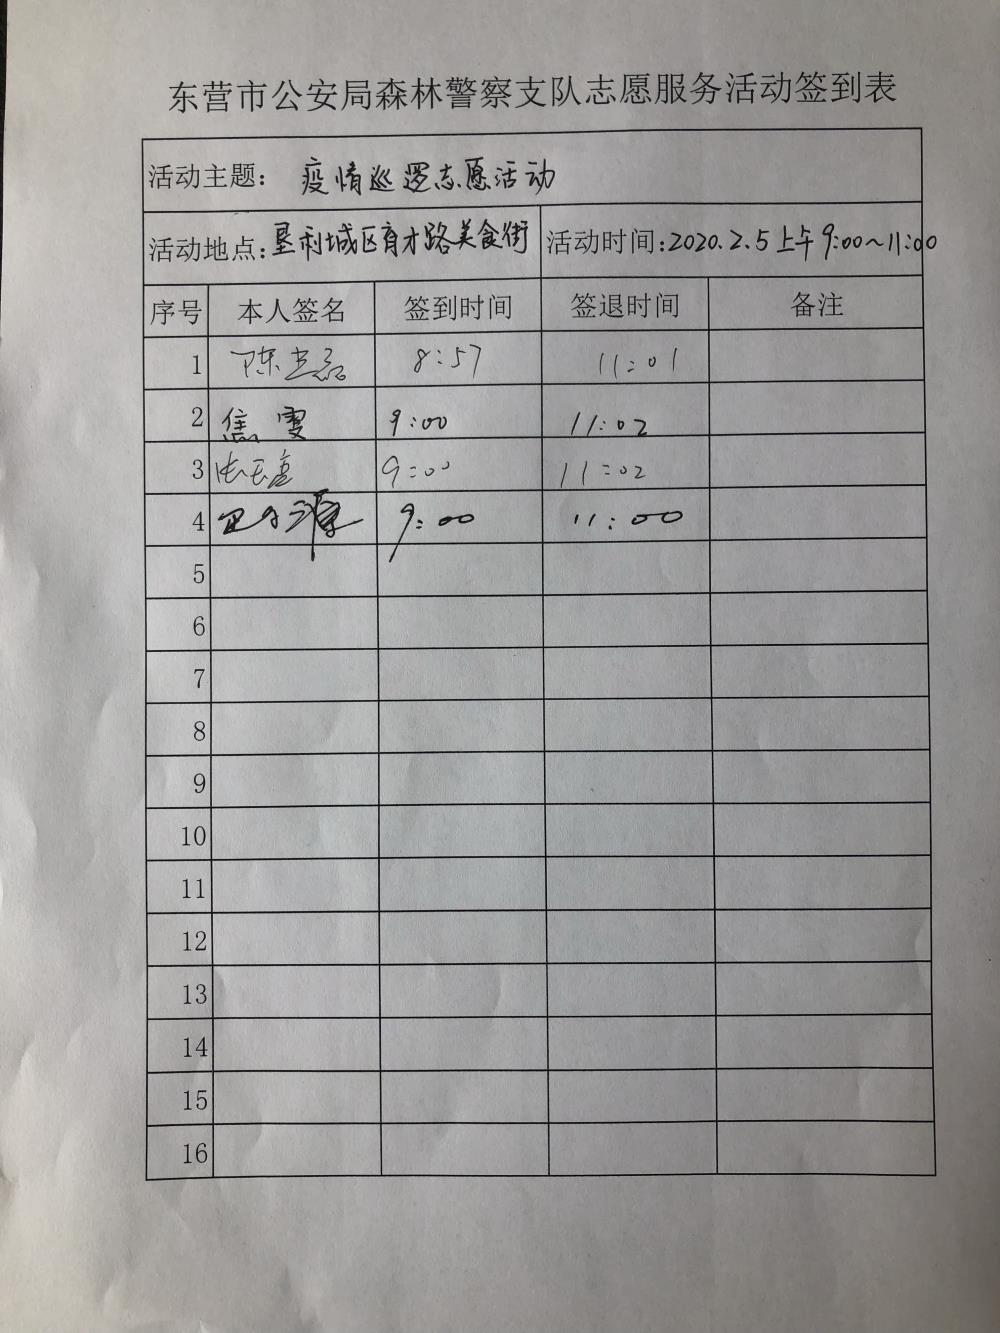 东营市公安局森林警察支队志愿服务活动签到表
活动主题： 疫情巡逻志愿活动
活动地点：垦利城区育才路美食街 活动时间：2020.2.5上午9:00~11:00
序号 本人签名 签到时间 签退时间 备注
1 8:57 11:01
2 焦雯 9:00 11:02
3 9:00 11:02
4 9:00 11:00
5
6
7
8
9
10
11
12
13
14
15
16